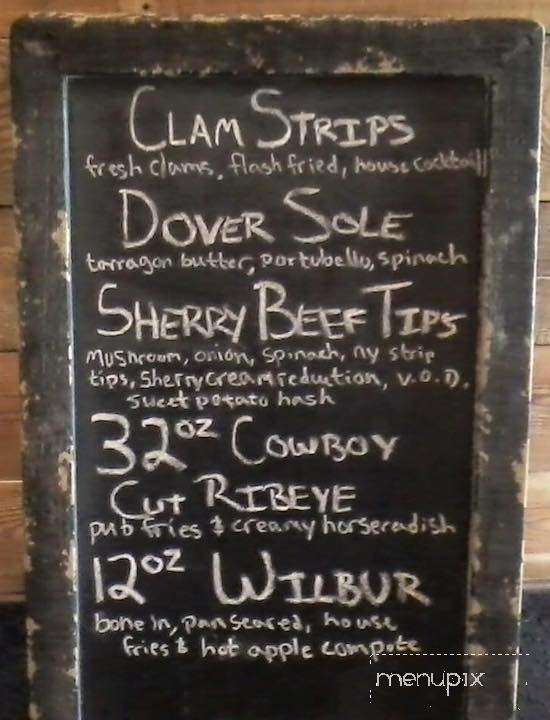 CLAM STRIPS
fresh clams, flash fried, house cocktail
DOVER SOLE
tarragon butter, portubello, spinach
SHERRY BEEF TIPS
MUShroom, onion, spinach, ny strip
tips, Sherry Cream reduction, V.O.D.
sweet potato hash
32oz COWBOY
CUT RIBEYE
pub fries & creamy horseradish
12oz WILBUR
bone in, pan seared, house
fries & hot apple compote
menupix